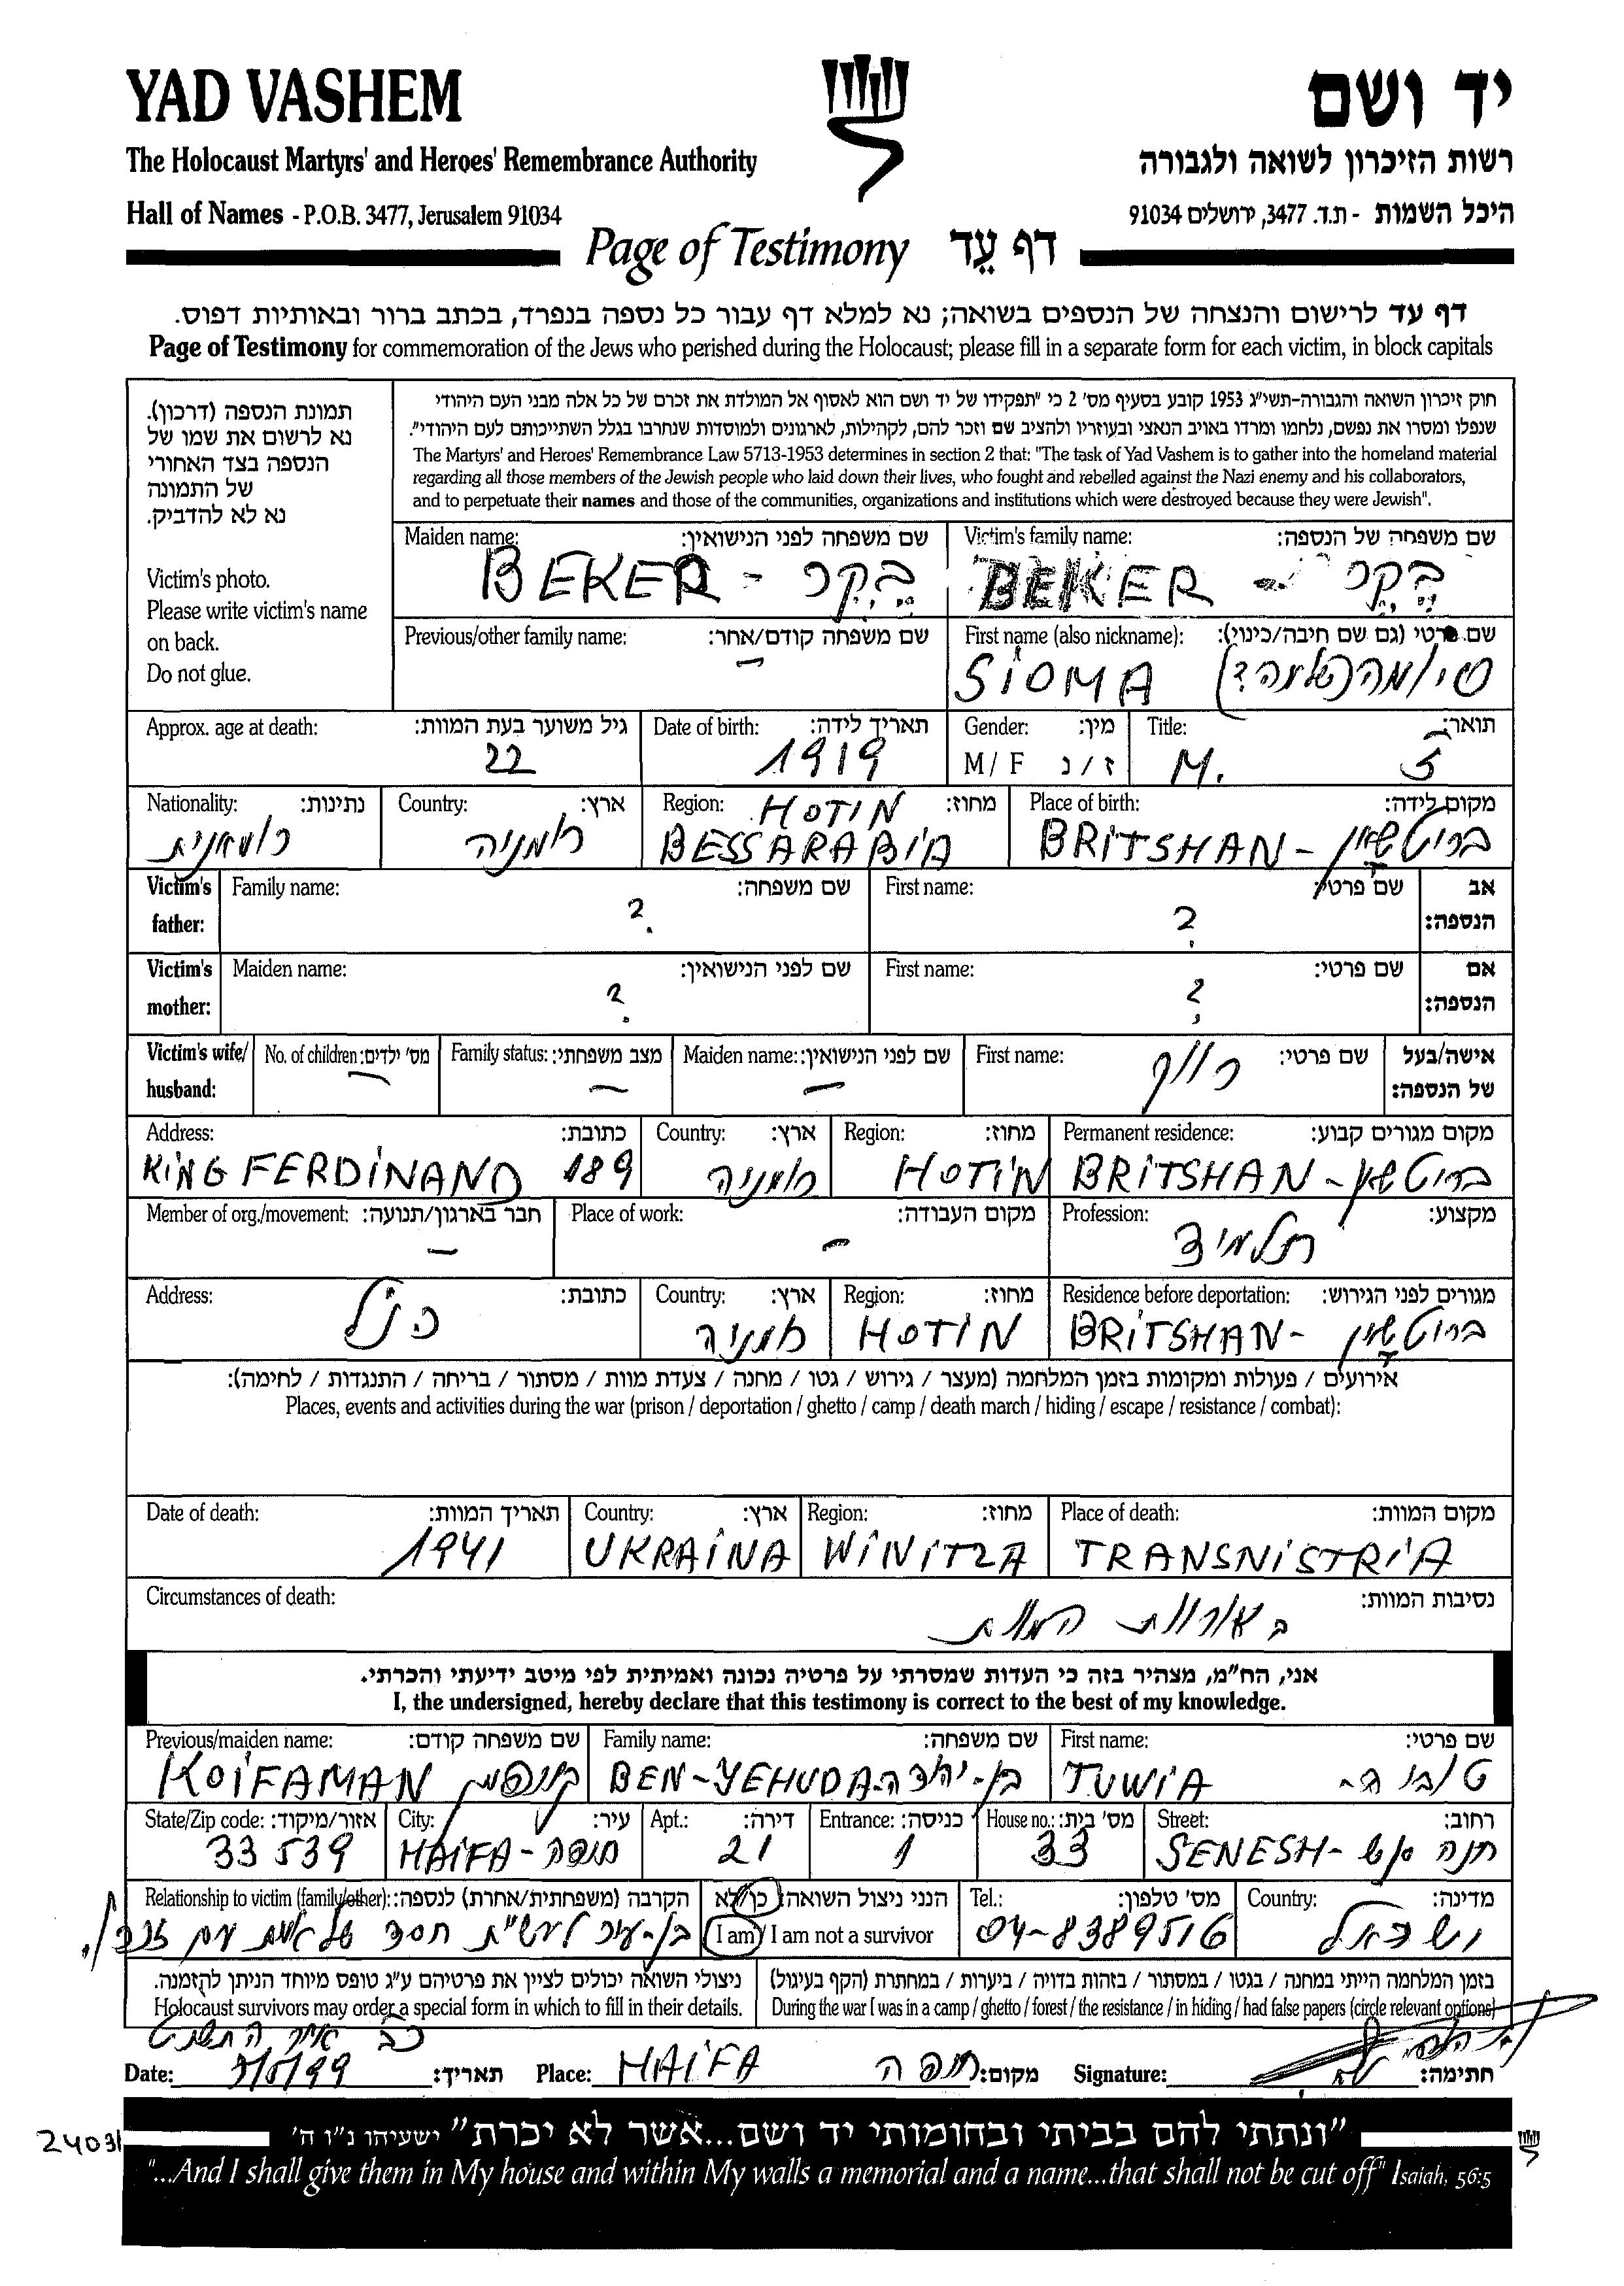 YAD VASHEM
יד ושם
The Holocaust Martyrs' and Heroes' Remembrance Authority
רשות הזיכרון לשואה ולגבורה
Hall of Names - P.O.B. 3477, Jerusalem 91034
היכל השמות - ת.ד. 3477, ירושלים 91034
Page of Testimony דף עֵד
דף עד לרישום והנצחה של הנספים בשואה; נא למלא דף עבור כל נספה בנפרד, בכתב ברור ובאותיות דפוס.
Page of Testimony for commemoration of the Jews who perished during the Holocaust; please fill in a separate form for each victim, in block capitals
תמונת הנספה (דרכון).
נא לרשום את שמו של
הנספה בצד האחורי
של התמונה
נא לא להדביק.
Victim's photo.
Please write victim's name
on back.
Do not glue.
חוק זיכרון השואה והגבורה-תשי"ג 1953 קובע בסעיף מס' 2 כי "תפקידו של יד ושם הוא לאסוף אל המולדת את זכרם של כל אלה מבני העם היהודי
שנפלו ומסרו את נפשם, נלחמו ומרדו באויב הנאצי ובעוזריו ולהציב שם וזכר להם, לקהילות, לארגונים ולמוסדות שנחרבו בגלל השתייכותם לעם היהודי".
The Martyrs' and Heroes' Remembrance Law 5713-1953 determines in section 2 that: "The task of Yad Vashem is to gather into the homeland material
regarding all those members of the Jewish people who laid down their lives, who fought and rebelled against the Nazi enemy and his collaborators,
and to perpetuate their names and those of the communities, organizations and institutions which were destroyed because they were Jewish".
Maiden name: שם משפחה לפני הנישואין:
BEKER - בֶקֶר
Victim's family name: שם משפחה של הנספה:
BEKER - בֶקֶר
Previous/other family name: שם משפחה קודם/אחר:
–
First name (also nickname): שם פרטי (גם שם חיבה/כינוי):
SIOMA סיומה
Approx. age at death: גיל משוער בעת המוות:
22
Date of birth: תאריך לידה:
1919
Gender: מין:
M / F ז / נ
Title: תואר:
M.
Nationality: נתינות:
רומאנית
Country: ארץ:
רומניה
Region: מחוז:
HOTIN
BESSARABIA
Place of birth: מקום לידה:
BRITSHAN - בריטשאן
Victim's father: Family name: שם משפחה:
?
First name: שם פרטי:
?
אב הנספה:
Victim's mother: Maiden name: שם לפני הנישואין:
?
First name: שם פרטי:
?
אם הנספה:
Victim's wife/ husband: No. of children: מס' ילדים:
–
Family status: מצב משפחתי:
–
Maiden name: שם לפני הנישואין:
–
First name: שם פרטי:
רווק
אישה/בעל של הנספה:
Address: כתובת:
KING FERDINAND 189
Country: ארץ:
רומניה
Region: מחוז:
HOTIN
Permanent residence: מקום מגורים קבוע:
BRITSHAN - בריטשאן
Member of org./movement: חבר בארגון/תנועה:
–
Place of work: מקום העבודה:
–
Profession: מקצוע:
תלמיד
Address: כתובת:
כנ"ל
Country: ארץ:
רומניה
Region: מחוז:
HOTIN
Residence before deportation: מגורים לפני הגירוש:
BRITSHAN - בריטשאן
אירועים / פעולות ומקומות בזמן המלחמה (מעצר / גירוש / גטו / מחנה / צעדת מוות / מסתור / בריחה / התנגדות / לחימה):
Places, events and activities during the war (prison / deportation / ghetto / camp / death march / hiding / escape / resistance / combat):
Date of death: תאריך המוות:
1941
Country: ארץ:
UKRAINA
Region: מחוז:
WINITZA
Place of death: מקום המוות:
TRANSNISTRIA
Circumstances of death: נסיבות המוות:
בצורות המוות
אני, הח"מ, מצהיר בזה כי העדות שמסרתי על פרטיה נכונה ואמיתית לפי מיטב ידיעתי והכרתי.
I, the undersigned, hereby declare that this testimony is correct to the best of my knowledge.
Previous/maiden name: שם משפחה קודם:
KOIFAMAN קויפמן
Family name: שם משפחה:
BEN-YEHUDA - בן-יהודה
First name: שם פרטי:
TUWIA טוביה -
State/Zip code: אזור/מיקוד:
33 539
City: עיר:
HAIFA - חיפה
Apt.: דירה:
21
Entrance: כניסה:
1
House no.: מס' בית:
33
Street: רחוב:
SENESH - חנה סנש
Relationship to victim (family/other): הקרבה (משפחתית/אחרת) לנספה:
בן-עיר לעשית חסד של אמת עם זכרו
הנני ניצול השואה: כן/לא
I am / I am not a survivor
Tel.: מס' טלפון:
04-8389516
Country: מדינה:
ישראל
ניצולי השואה יכולים לציין את פרטיהם ע"ג טופס מיוחד הניתן להזמנה.
Holocaust survivors may order a special form in which to fill in their details.
בזמן המלחמה הייתי במחנה / בגטו / במסתור / בזהות בדויה / ביערות / במחתרת (הקף בעיגול)
During the war I was in a camp / ghetto / forest / the resistance / in hiding / had false papers (circle relevant options)
כב אייר התשנט
Date: 7/5/99 תאריך: Place: HAIFA חיפה מקום: Signature: חתימה:
"ונתתי להם בביתי ובחומותי יד ושם...אשר לא יכרת" ישעיהו נ"ו ה'
24031
"...And I shall give them in My house and within My walls a memorial and a name...that shall not be cut off" Isaiah, 56:5